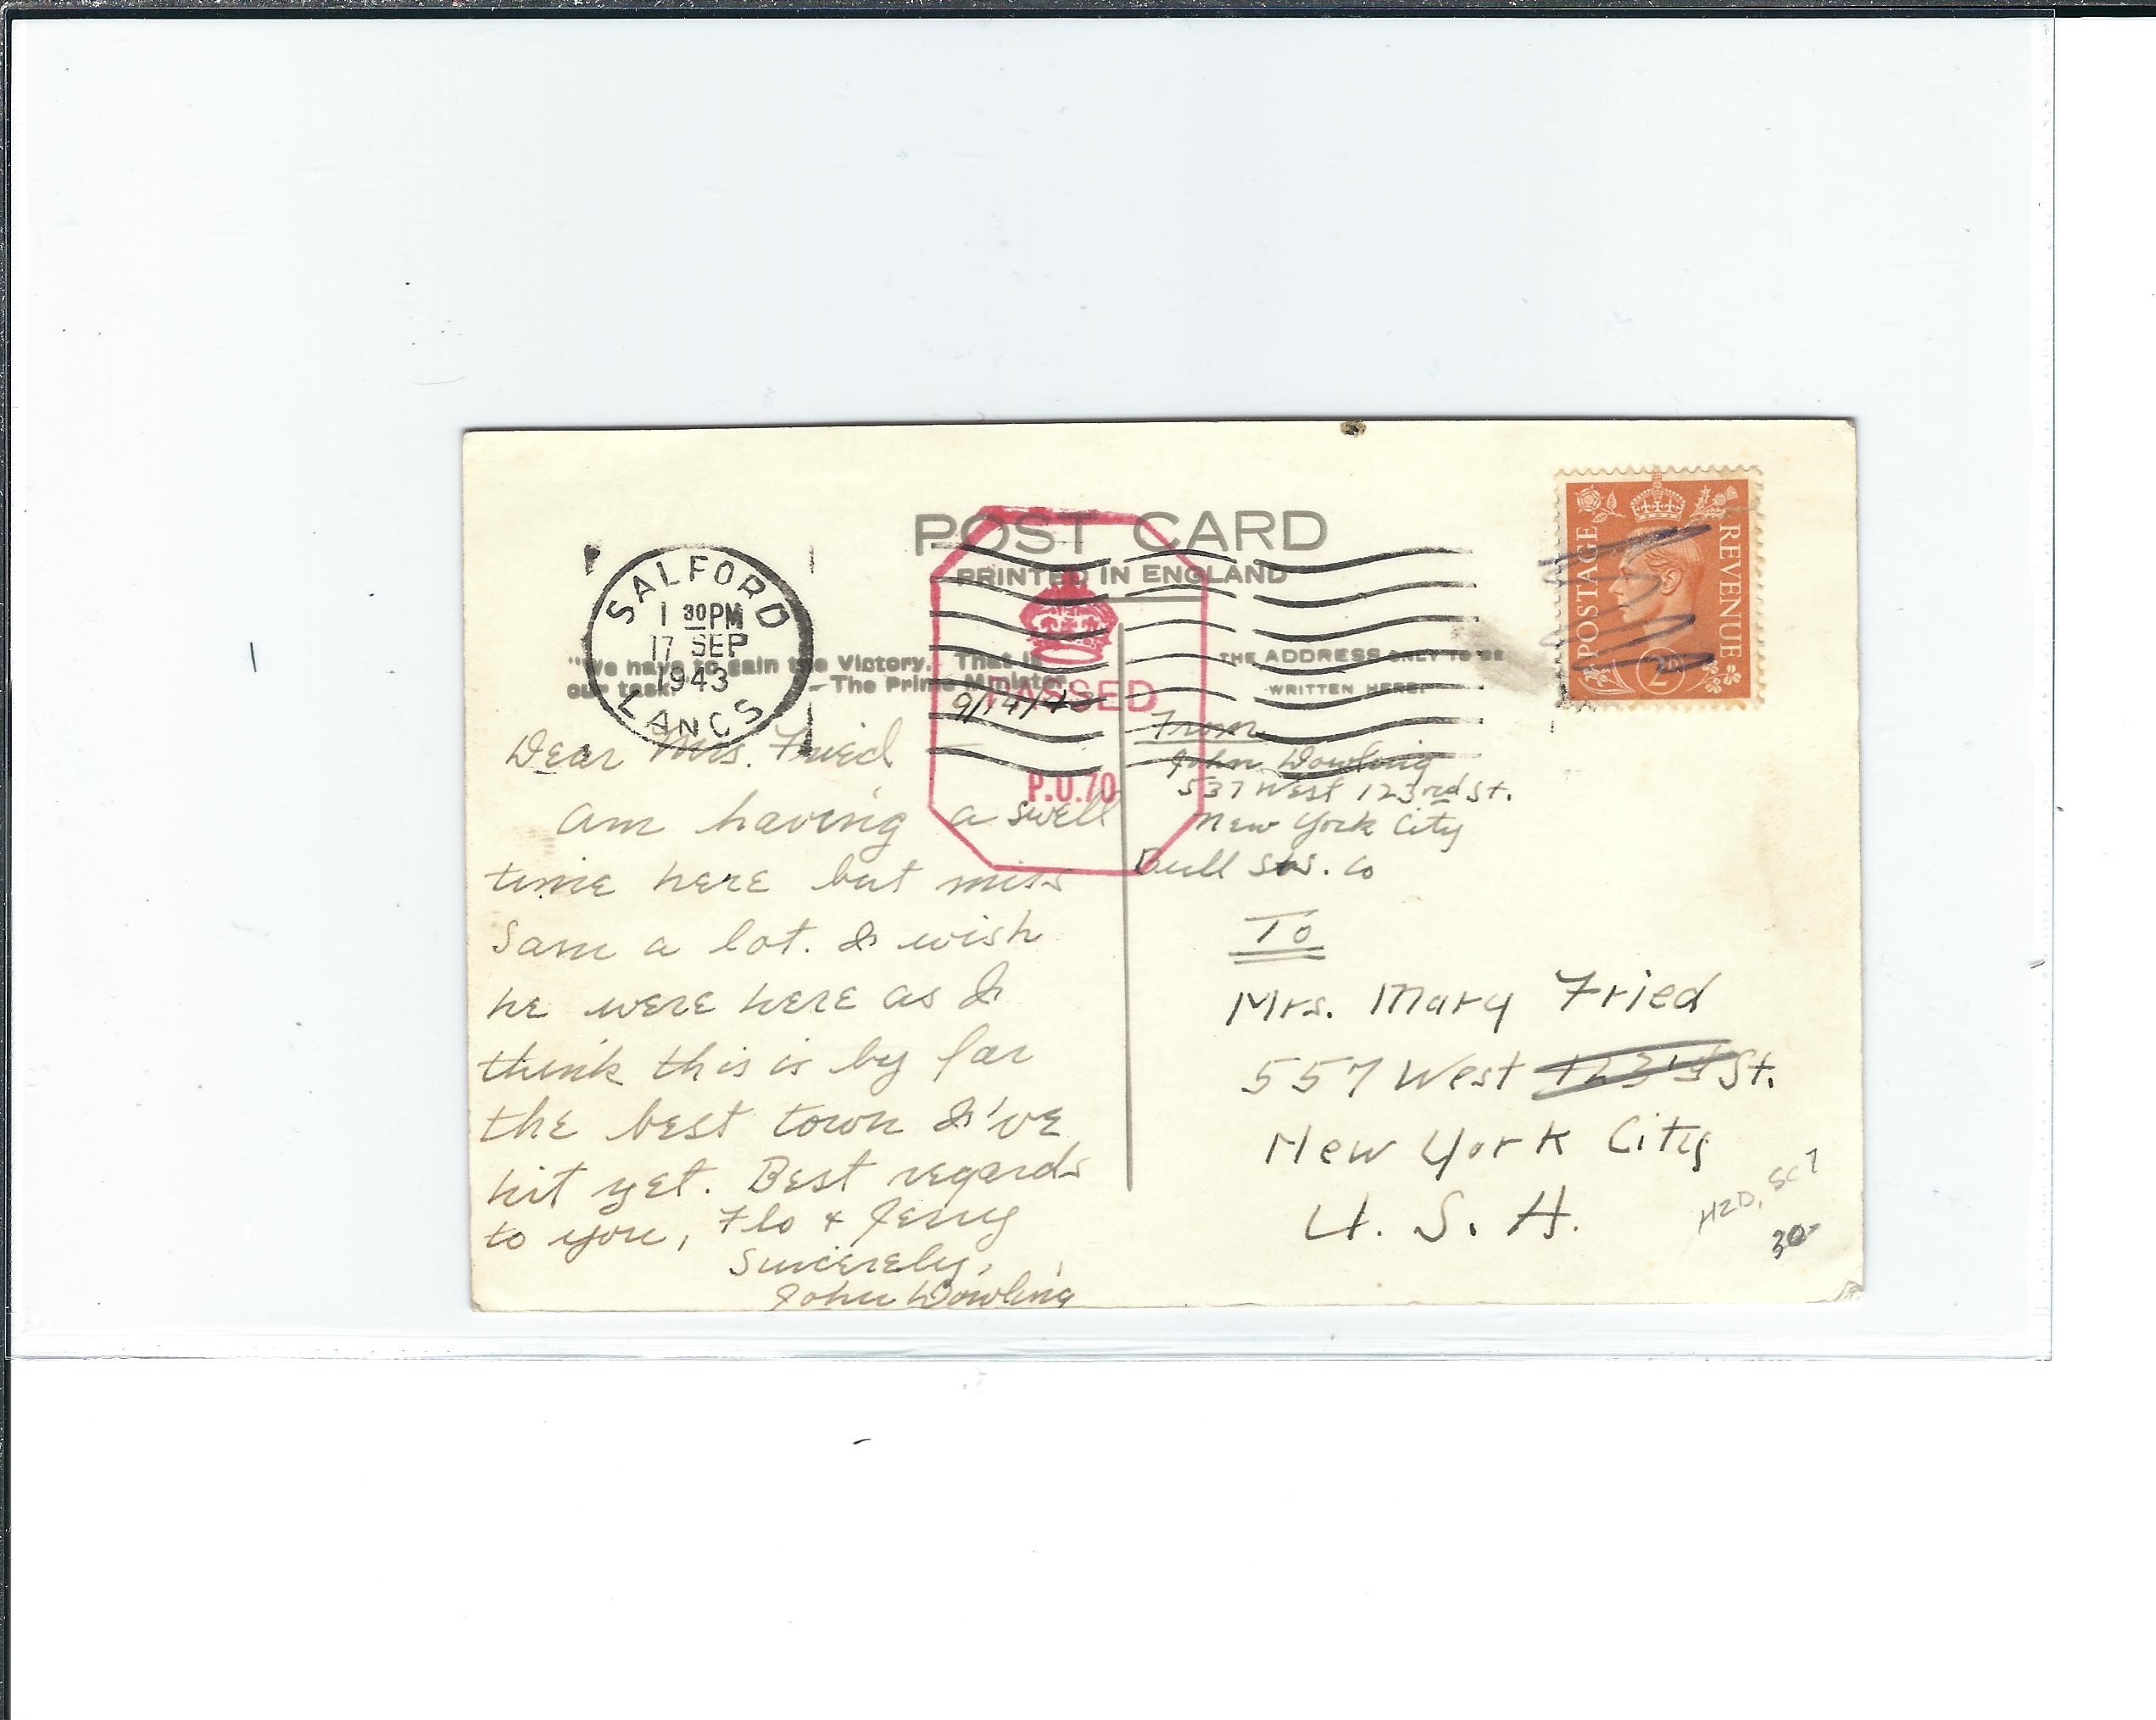 POST CARD
PRINTED IN ENGLAND
SALFORD
1 30 PM
17 SEP
1943
LANCS
"We have to gain the Victory. That is
our task." —The Prime Minister.
THE ADDRESS ONLY TO BE
WRITTEN HERE.
POSTAGE
REVENUE
2D
PASSED
P.U.70
9/14/43
Dear Mrs. Fried
Am having a swell
time here but miss
Sam a lot. I wish
he were here as I
think this is by far
the best town I've
hit yet. Best regards
to you, Flo & Jerry
Sincerely,
John Dowling
From
John Dowling
537 West 123rd St.
New York City
Bull S.S. Co
To
Mrs. Mary Fried
557 West 123rd St.
New York City
U. S. A.
H20, SC7
30-